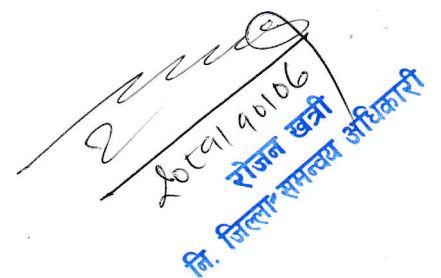 २०८१।१०।०६
रोजन खत्री
नि. जिल्ला समन्वय अधिकारी